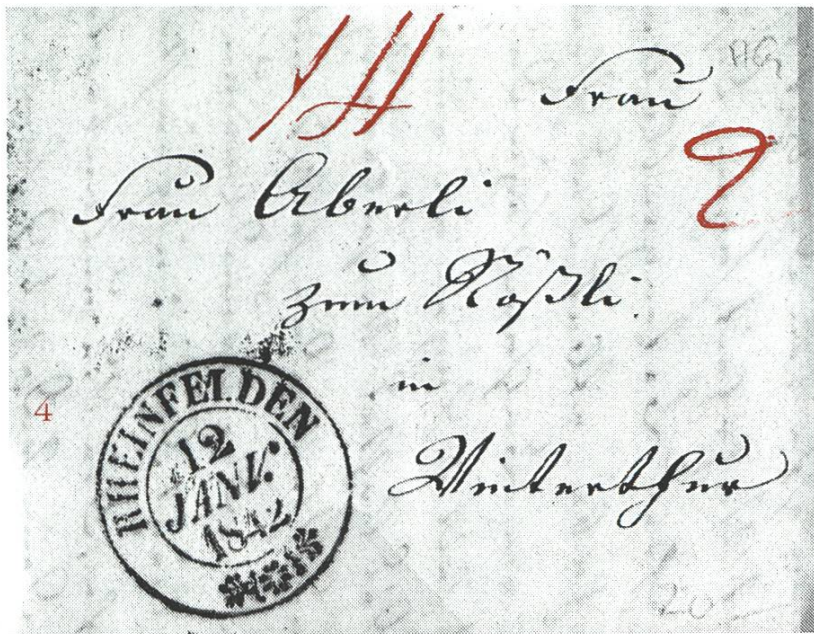 Frau
Frau Aberli
zum Rößli.
in
Winterthur
4
RHEINFELDEN
12
JANV.
1842
AG
2
20